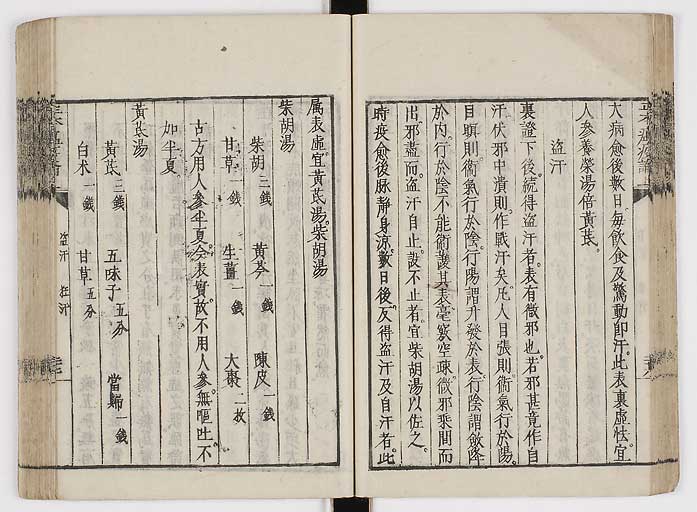 大病愈後數日毎飲食及驚動即汗此表裏虛怯宜
人參養榮湯倍黃芪
盜汗
裏證下後續得盜汗者表有微邪也若邪甚竟作自
汗伏邪中潰則作戰汗矣凡人目張則衛氣行於陽
目瞑則衛氣行於陰行陽謂升發於表行陰謂斂降
於内行於陰不能衛護其表毫竅空疎微邪乘間而
出邪盡而盜汗自止設不止者宜柴胡湯以佐之
時疫愈後脉靜身凉數日後反得盜汗及自汗者此
属表虛宜黃芪湯柴胡湯
柴胡湯
柴胡三錢 黃芩一錢 陳皮一錢
甘草一錢 生薑一錢 大棗二枚
古方用人參半夏今表實故不用人參無嘔吐不
加半夏
黃芪湯
黃芪三錢 五味子五分 當歸一錢
白朮一錢 甘草五分
盜汗 狂汗